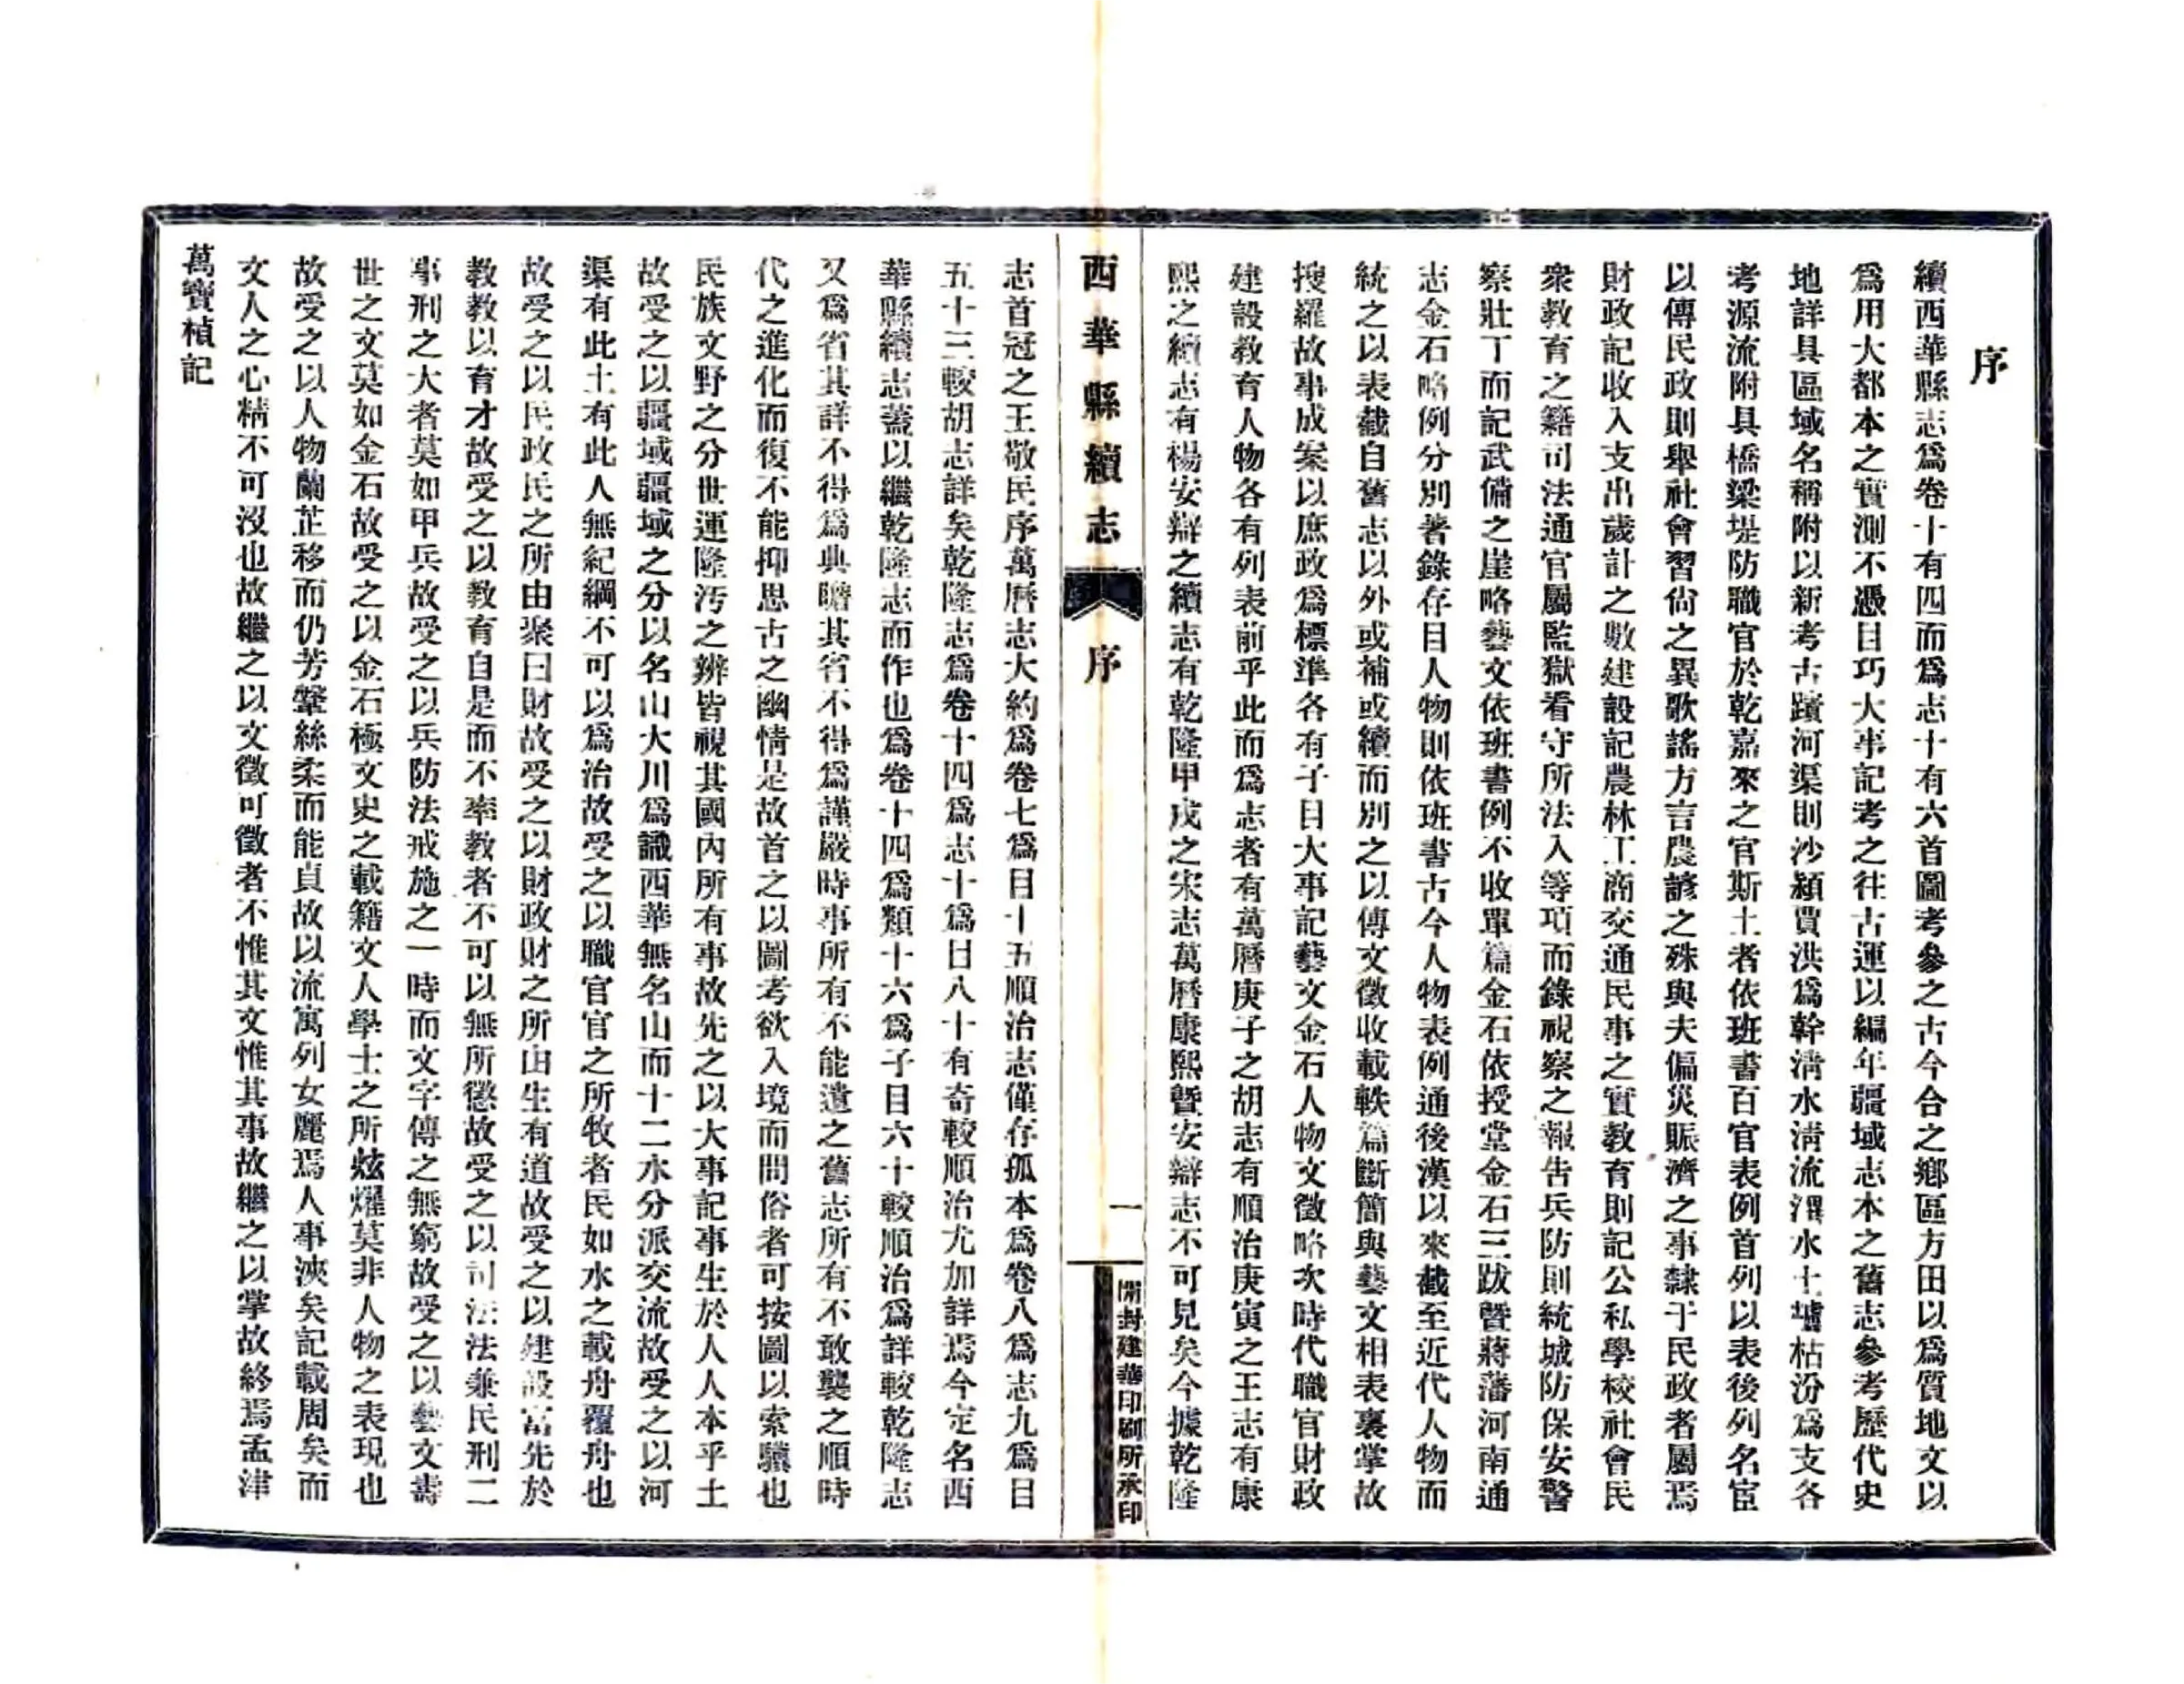 序
續西華縣志爲卷十有四而爲志十有六首圖考參之古今合之鄉區方田以爲質地文以
爲用大都本之實測不憑目巧大事記考之往古運以編年疆域志本之舊志參考歷代史
地詳具區域名稱附以新考古蹟河渠則沙潁賈洪爲幹淸水淸流潩水土壚枯汾爲支各
考源流附具橋梁堤防職官於乾嘉來之官斯土者依班書百官表例首列以表後列名宦
以傳民政則舉社會習尙之異歌謠方言農諺之殊與夫偏災賑濟之事隸于民政者屬焉
財政記收入支出歲計之數建設記農林工商交通民事之實教育則記公私學校社會民
衆教育之籍司法通官屬監獄看守所法入等項而錄視察之報告兵防則統城防保安警
察壯丁而記武備之崖略藝文依班書例不收單篇金石依授堂金石三跋暨蔣藩河南通
志金石略例分別著錄存目人物則依班書古今人物表例通後漢以來截至近代人物而
統之以表截自舊志以外或補或續而別之以傳文徵收載軼篇斷簡與藝文相表裏掌故
搜羅故事成案以庶政爲標準各有子目大事記藝文金石人物文徵略次時代職官財政
建設教育人物各有列表前乎此而爲志者有萬曆庚子之胡志有順治庚寅之王志有康
熙之續志有楊安辯之續志有乾隆甲戌之宋志萬曆康熙暨安辯志不可見矣今據乾隆
西華縣續志
序
一
開封建華印刷所承印
志首冠之王敬民序萬曆志大約爲卷七爲目十五順治志僅存孤本爲卷八爲志九爲目
五十三較胡志詳矣乾隆志爲卷十四爲志十爲目八十有奇較順治尤加詳焉今定名西
華縣續志蓋以繼乾隆志而作也爲卷十四爲類十六爲子目六十較順治爲詳較乾隆志
又爲省其詳不得爲典贍其省不得爲謹嚴時事所有不能遺之舊志所有不敢襲之順時
代之進化而復不能抑思古之幽情是故首之以圖考欲入境而問俗者可按圖以索驥也
民族文野之分世運隆污之辨皆視其國內所有事故先之以大事記事生於人人本乎土
故受之以疆域疆域之分以名山大川爲識西華無名山而十二水分派交流故受之以河
渠有此土有此人無紀綱不可以爲治故受之以職官官之所牧者民如水之載舟覆舟也
故受之以民政民之所由聚曰財故受之以財政財之所由生有道故受之以建設富先於
教教以育才故受之以教育自是而不率教者不可以無所懲故受之以司法法兼民刑二
事刑之大者莫如甲兵故受之以兵防法戒施之一時而文字傳之無窮故受之以藝文壽
世之文莫如金石故受之以金石極文史之載籍文人學士之所炫燿莫非人物之表現也
故受之以人物蘭芷移而仍芳鞶絲柔而能貞故以流寓列女麗焉人事浹矣記載周矣而
文人之心精不可沒也故繼之以文徵可徵者不惟其文惟其事故繼之以掌故終焉孟津
萬寶楨記